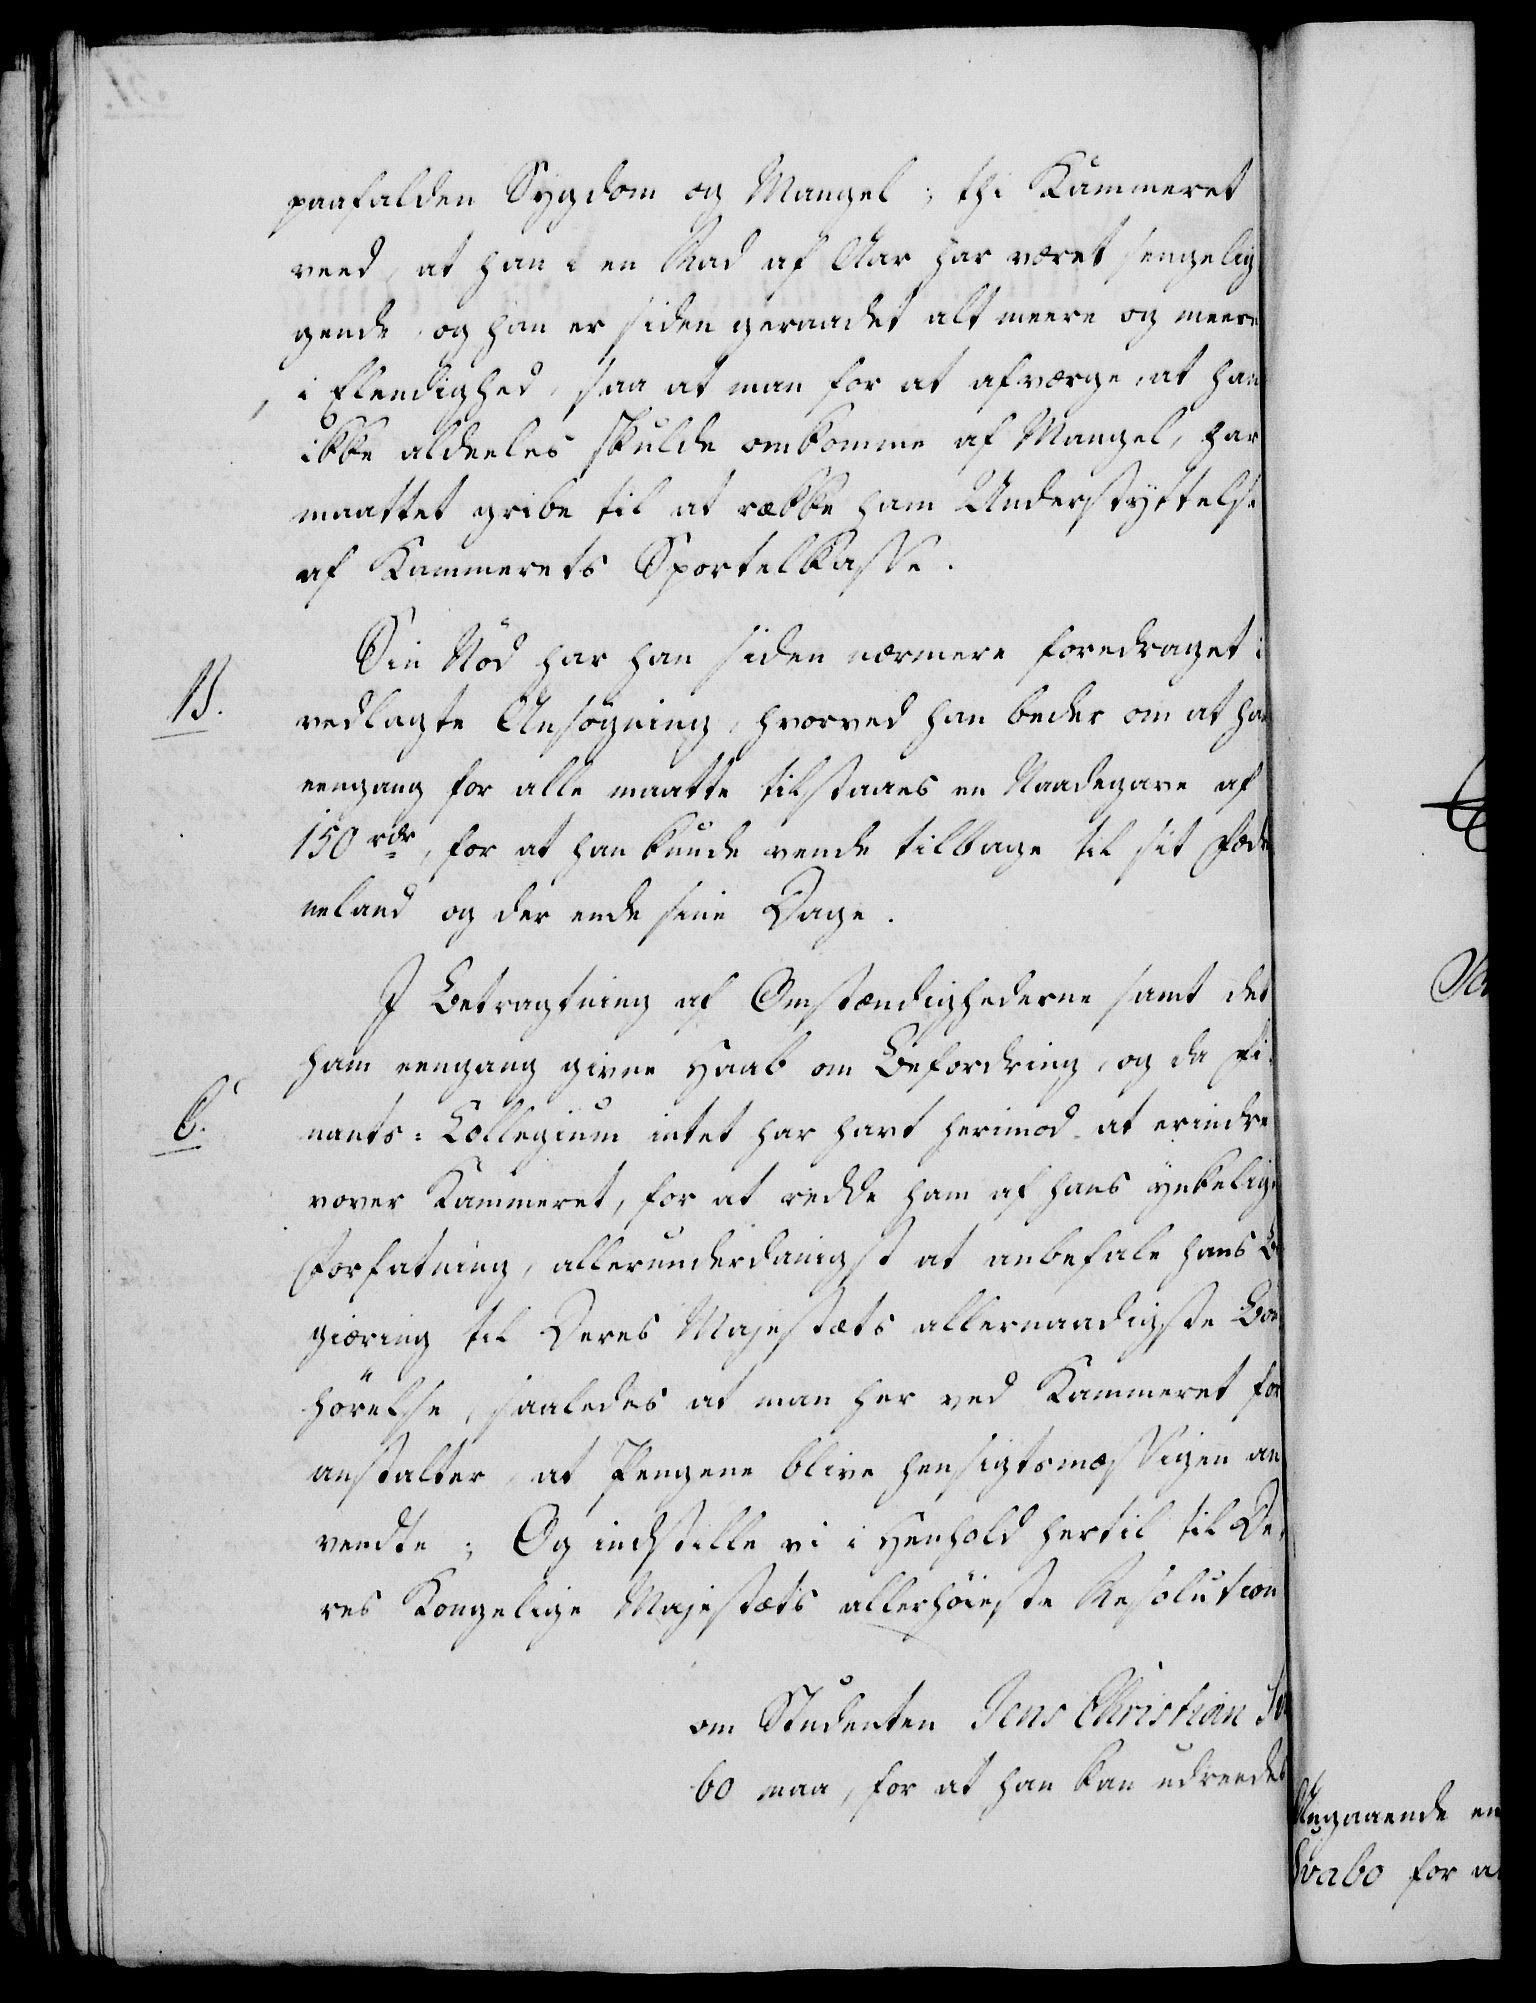 paafalden Sygdom og Mangel; thi Kammeret
veed, at han i en Rad af Aar har været sengelig
gende, og han er siden geraadet alt meere og meere
i Elendighed, saa at man for at afværge, at han
ikke aldeeles skulde omkomme af Mangel, har
maattet gribe til at række ham Understyttelse
af Kammerets Sportelkasse.
Sin Nöd har han siden nærmere foredraget i
B.
vedlagte Ansögning, hvorved han beder om at han
eengang for alle maatte tilstaaes en Naadegave af
150 rdr, for at han kunde vende tilbage til sit Fæde
neland og der ende sine Dage.
I Betragtning af Omstændighederne samt det
ham eengang givne Haab om Befordring, og da Fi-
C.
nants-Collegium intet har havt herimod at erindre
vover Kammeret, for at redde ham af hans ynkelige
Forfatning, allerunderdanigst at anbefale hans Be
giæring til Deres Majestæts allernaadigste Bön
hörelse, saaledes at man her ved Kammeret for
anstalter, at Pengene blive hensigtsmæssigen an
vendte; Og indstille vi i Henhold hertil til De-
res Kongelige Majestæts allerhöieste Resolution
om Studenten Jens Christian Sva
bo maa, for at han kan udreedes
Angaaende en
Svabo for a